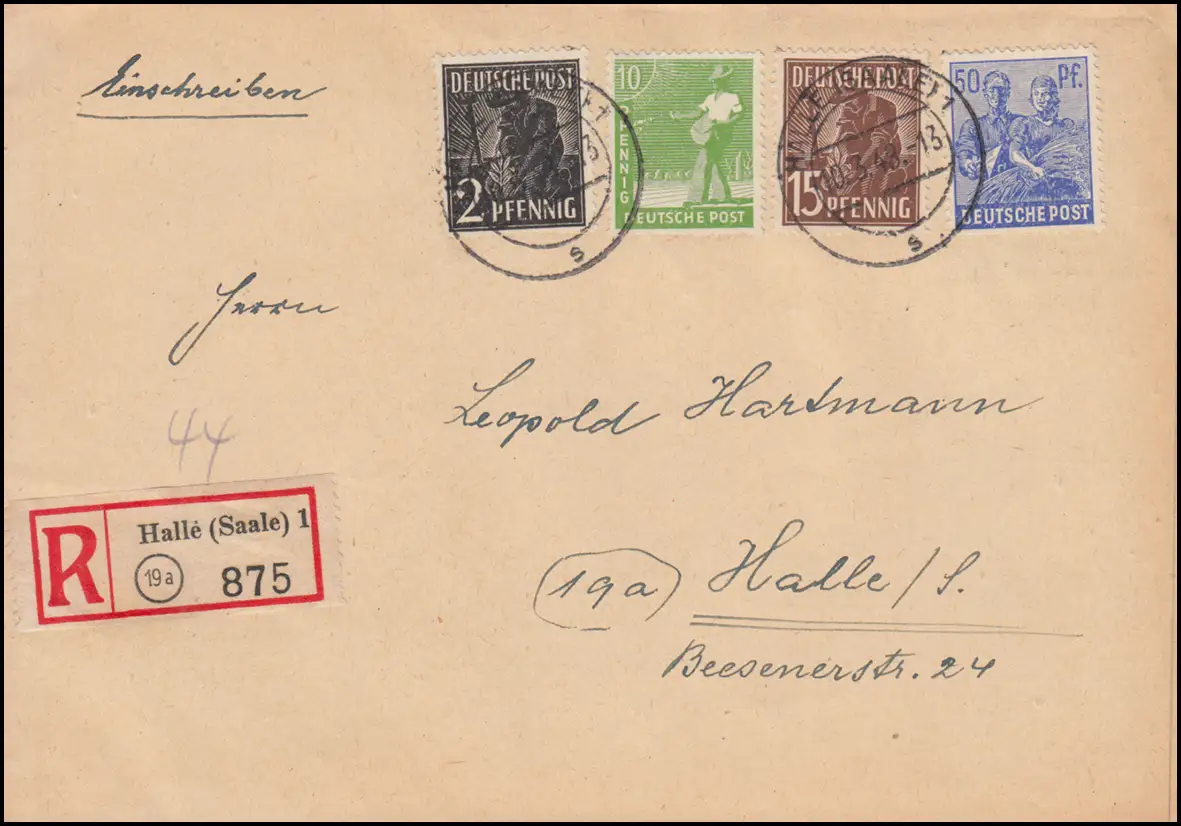 Einschreiben
DEUTSCHE POST
2 PFENNIG
10
PFENNIG
DEUTSCHE POST
DEUTSCHE POST
15 PFENNIG
50 Pf.
DEUTSCHE POST
HALLE (SAALE) 1
-13
s
s
Herrn
44
Leopold Hartmann
R
Hallė (Saale) 1
19a
875
(19a) Halle/S.
Beesenerstr. 24